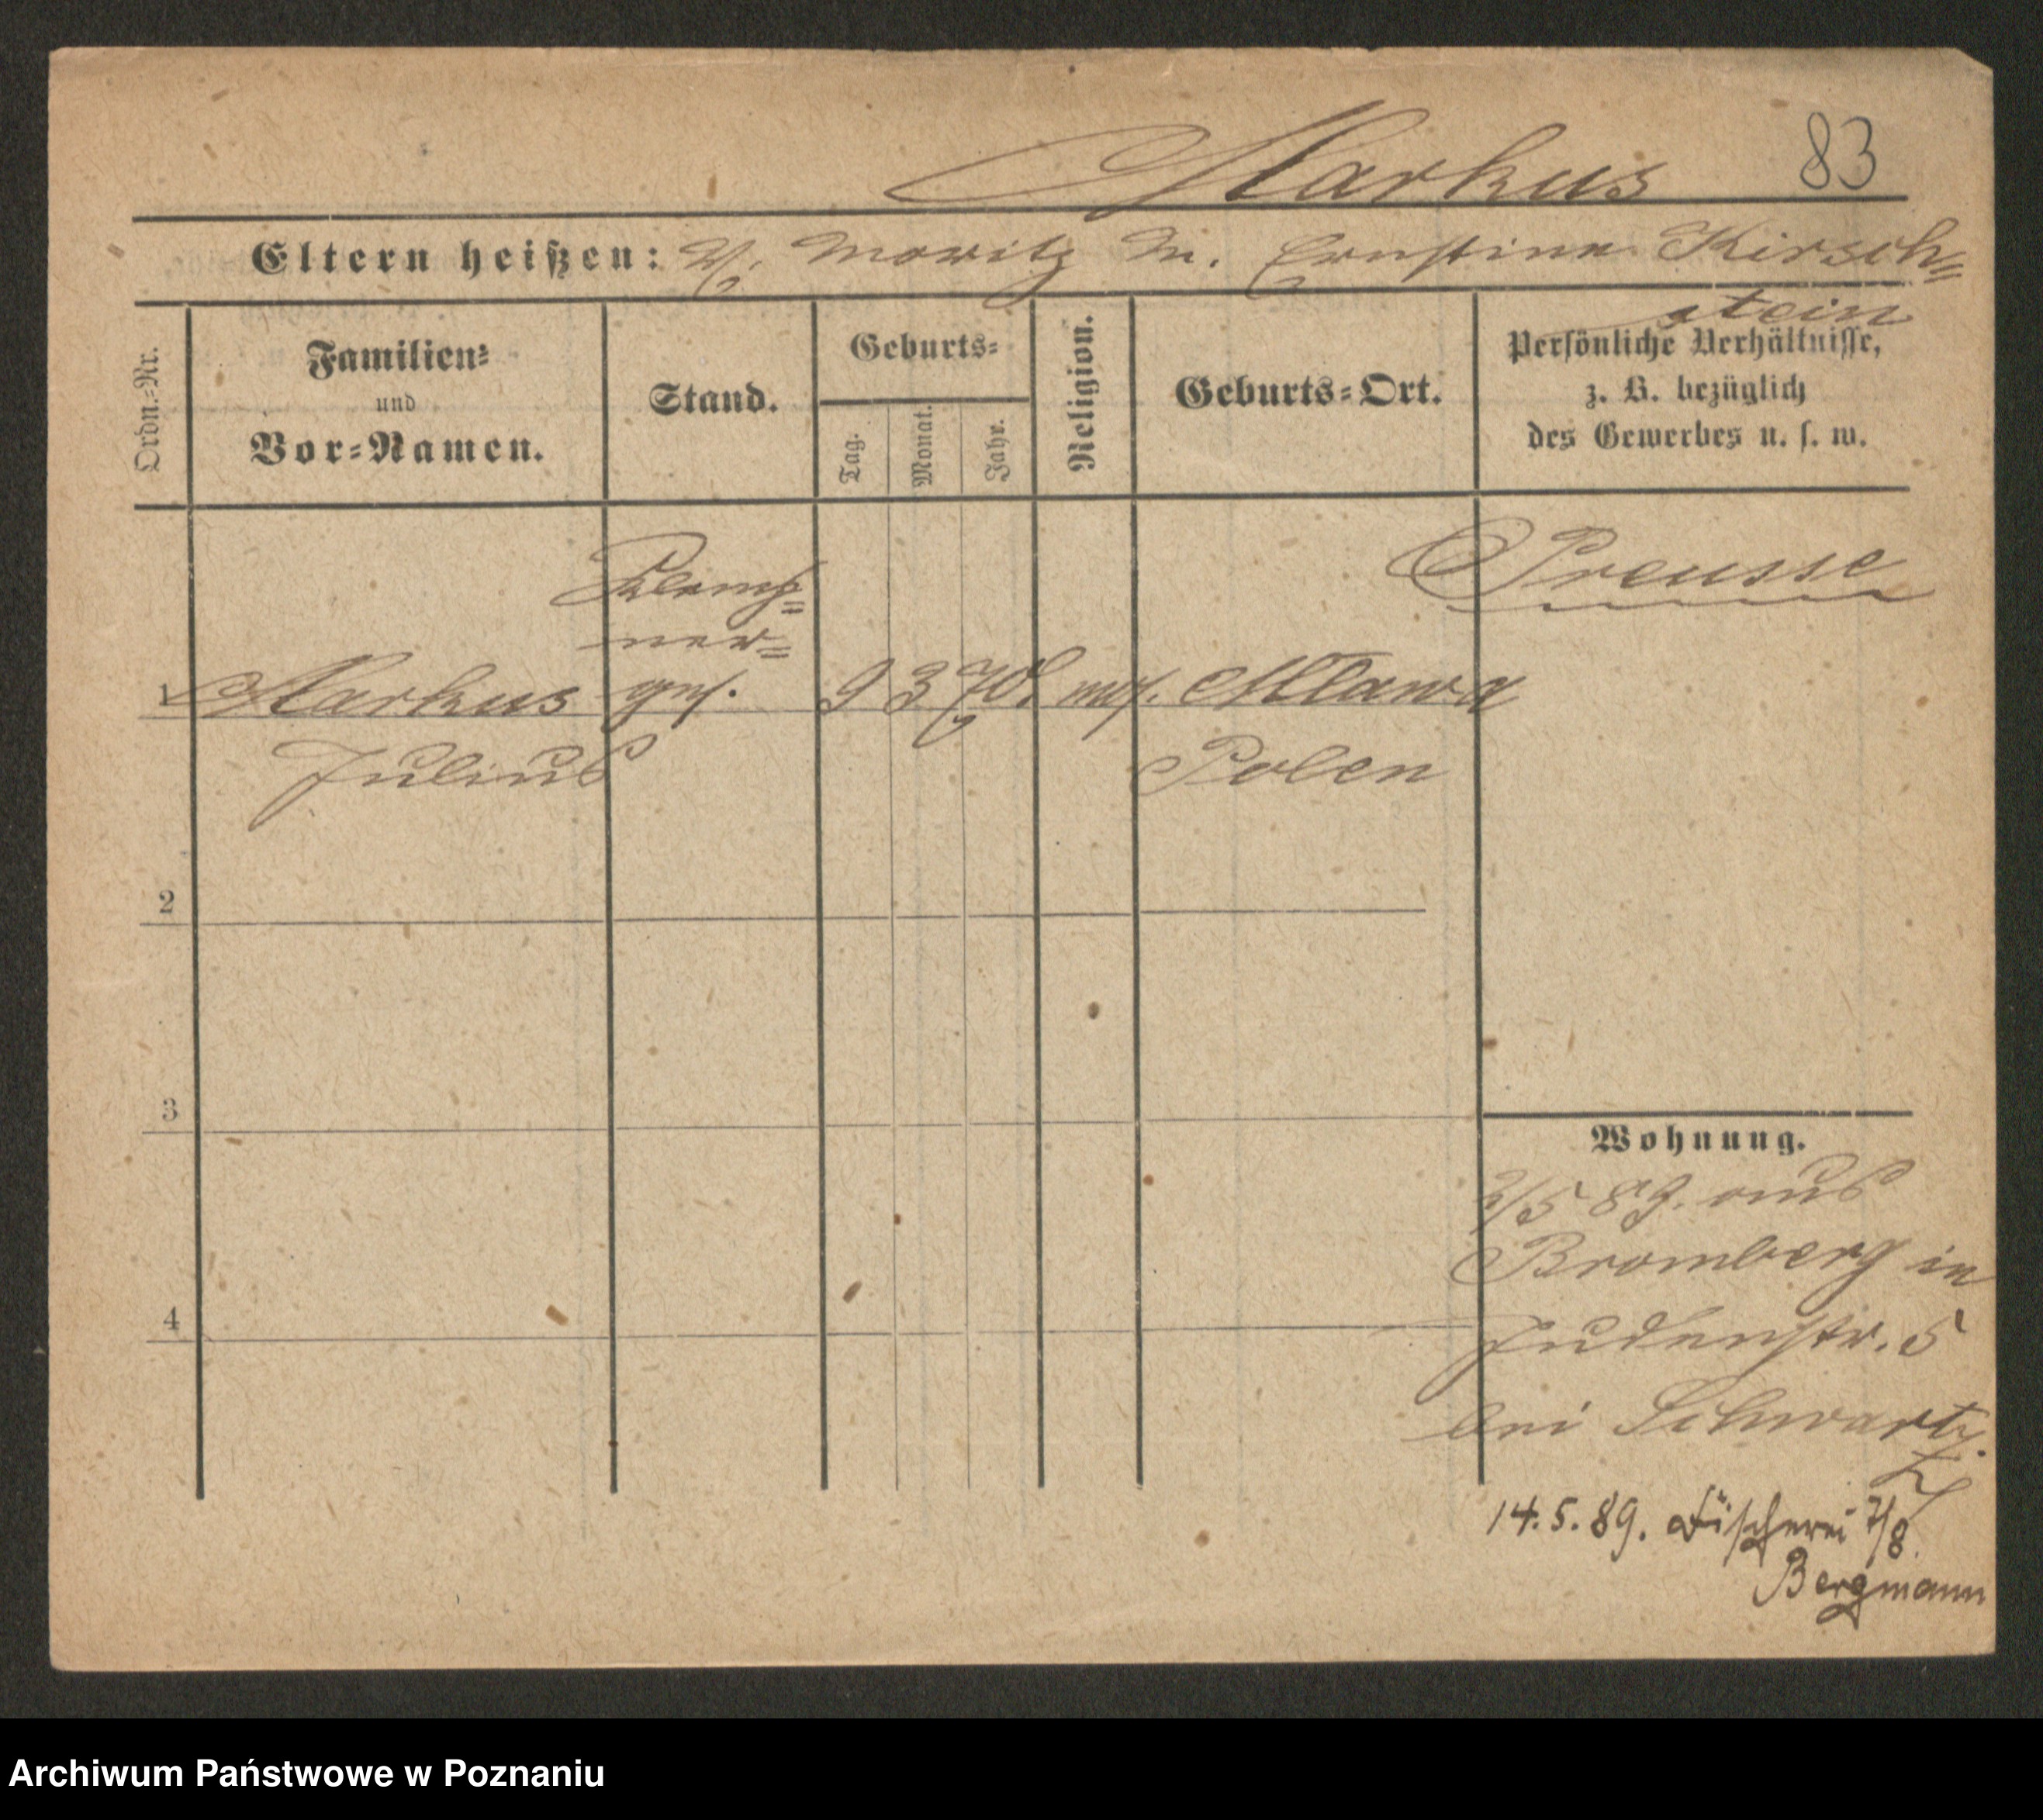 Markus 83
Eltern heißen: V. Moritz M. Ernstine Kirsch=
stein
Ordn.=Nr.
Familien=
und
Vor=Namen.
Stand.
Geburts=
Tag.
Monat.
Jahr.
Religion.
Geburts=Ort.
Persönliche Verhältnisse,
z. B. bezüglich
des Gewerbes u. s. w.
Klemp=
ner=
Preusse
1 Markus ges. 9 3 70 mos. Mlawa
Julius Polen
2
3
4
Wohnung.
2/5 89. aus
Bromberg in
Judenstr. 5
bei Schwartz.
14.5.89. Fischerei 7/8.
Bergmann
Archiwum Państwowe w Poznaniu